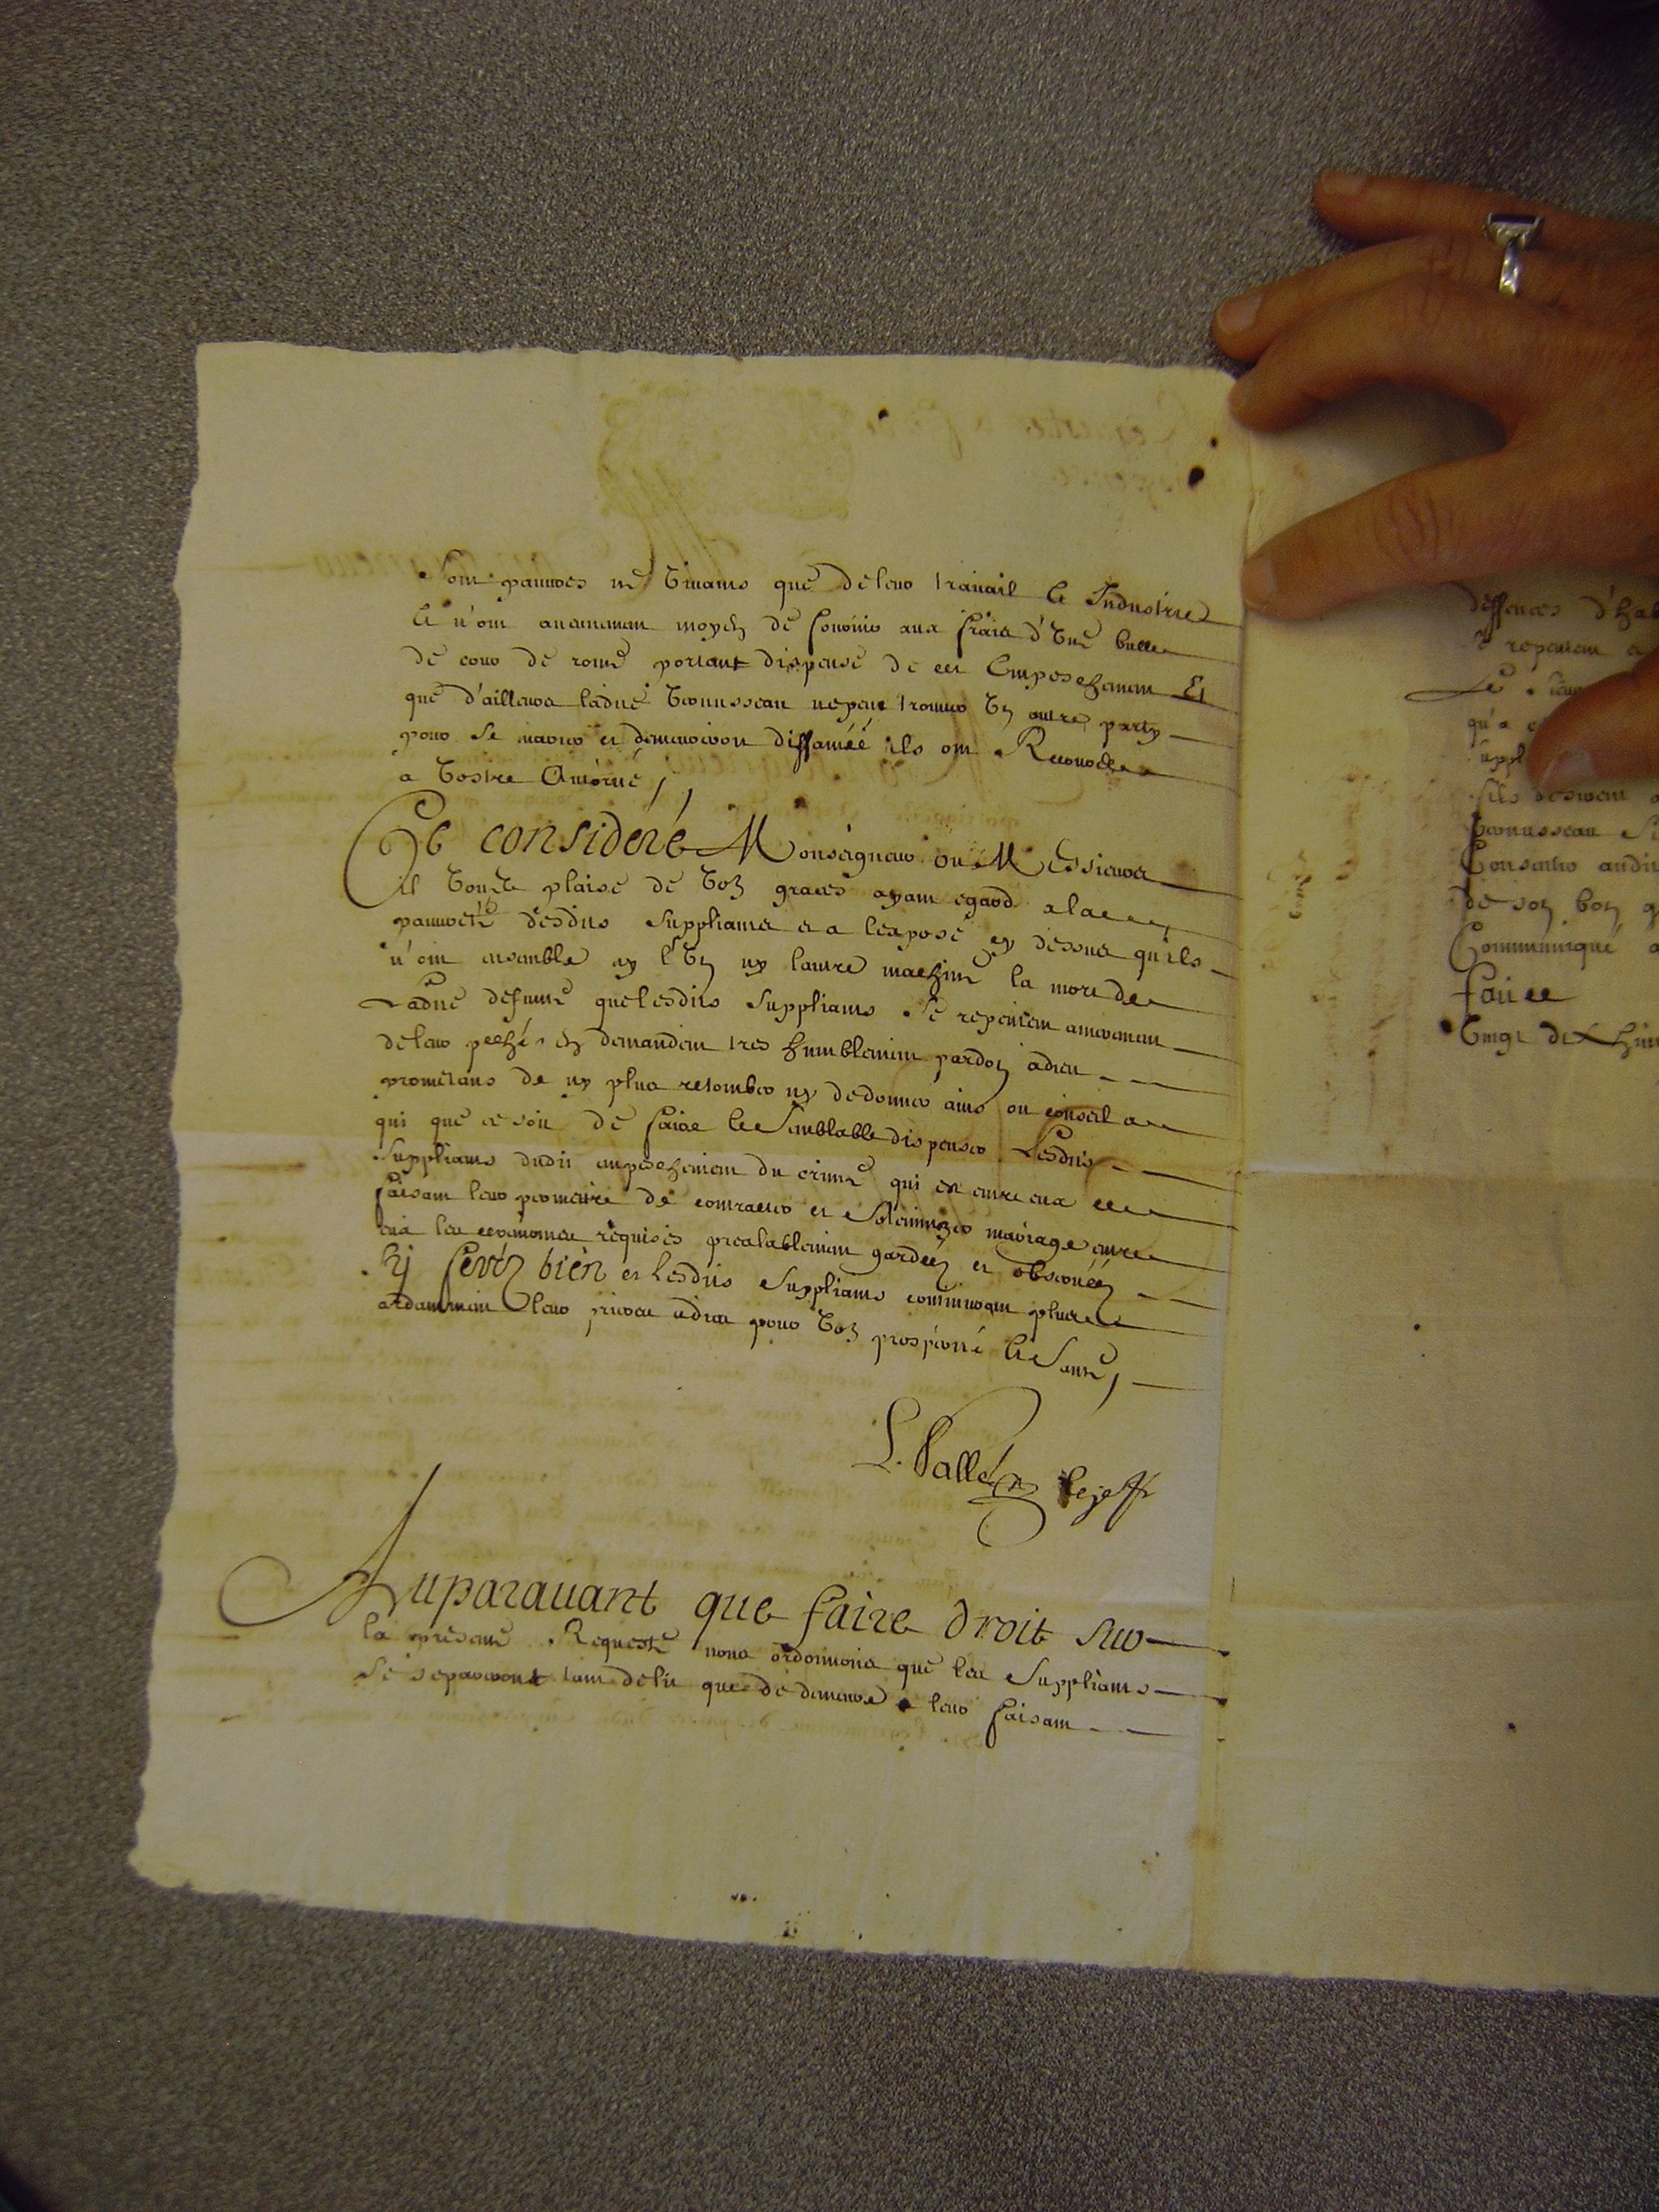 sont pauvres ne vivants que de leur travail & Industrie
& n'ont aucunement moyen de fournir aux frais d'une bulle
de cour de rome portant dispense de cet Empeschement Et
que d'ailleurs ladite Brousseau ne peut trouver un autre party
pour se marier et demeureroit diffamée ils ont Recours
a vostre Autorité
Ce consideré Monseigneur ou Messieurs
il vous plaise de voz graces ayant egard a la
pauvreté desdits suppliants et a lexposé cy dessus qu'ils
n'ont ensemble ny l'un ny lautre machiné la mort de
Ladite defunte que lesdits suppliants se repentent amerement
de leur peché en demandent tres humblement pardon a dieu
prometans de ny plus retomber ny de donner aide ou conseil a
qui que ce soit de faire le semblable dispenser Lesdits
suppliants dudit empeschement du crime qui est entre eux &
faisant leur permettre de contracter et solemnizer mariage entre
eux les ceremonies requises prealablement gardeéz et observeéz
sy ferez bien et lesdits suppliants continueront plus
ardamment leur prieres a dieu pour voz prosperité & santé
Auparavant que faire droit sur
la presente Requeste nous ordonnons que les suppliants
se separeront tant de lit que de demeure & leur faisant
deffences d'ha
se repentent
Le
qu'a
suppl
fils
Brousseau
Consentir audit
de son bon
Communiqué a
faire
vingt dix huit